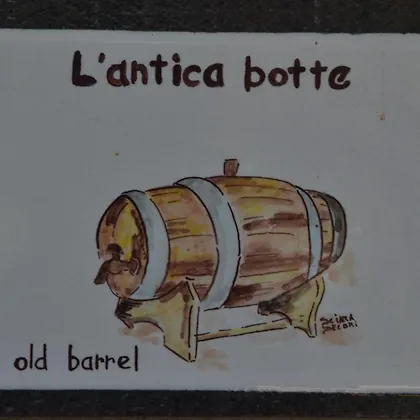 L'antica botte
SCIARA
DECORI
old barrel